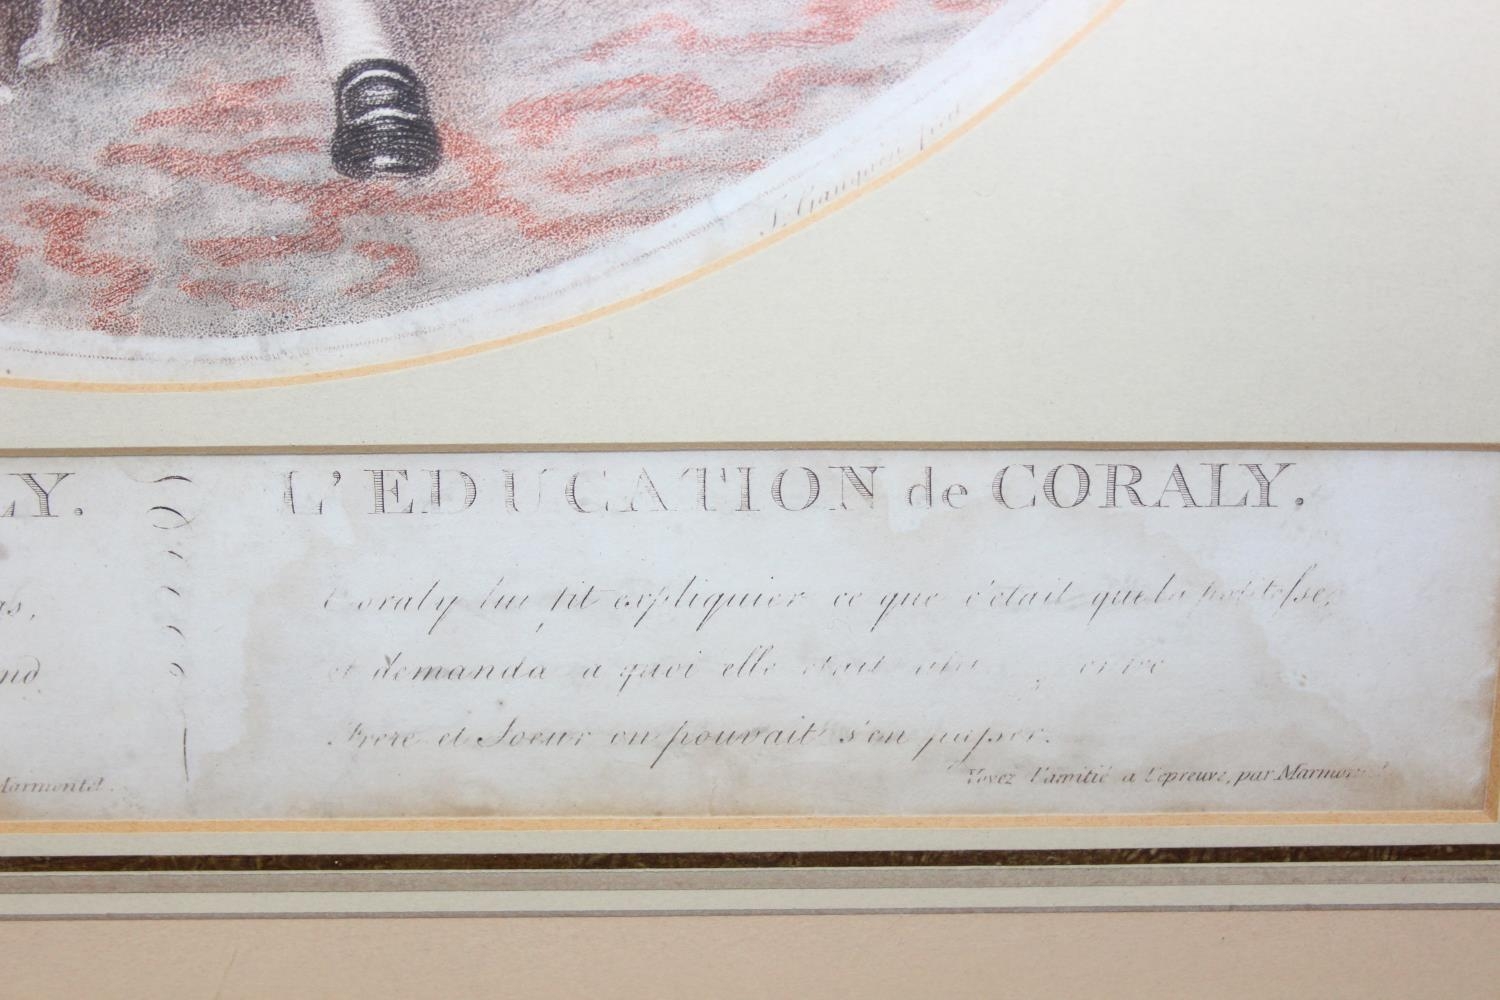 J. Gauguin fecit
LY. L'EDUCATION de CORALY.
as,
nd
Marmontel.
Coraly lui fit expliquier ce que c'etait que la politesse,
et demanda a quoi elle etait entre
Frere et Soeur on pouvait s'en passer.
Voyez l'amitié a l'epreuve, par Marmontel